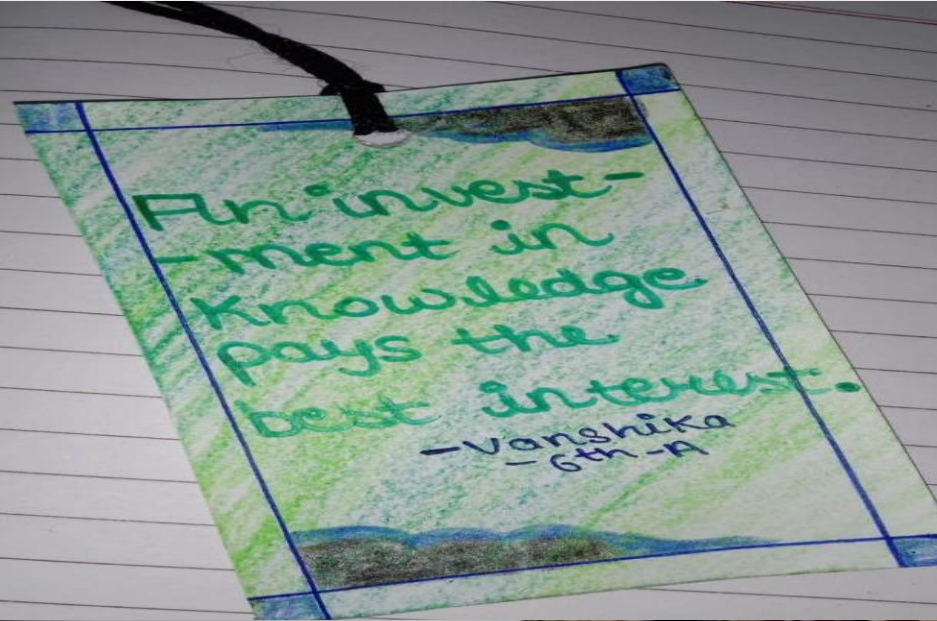 An invest-
-ment in
knowledge
pays the
best interest.
-Vanshika
-6th-A